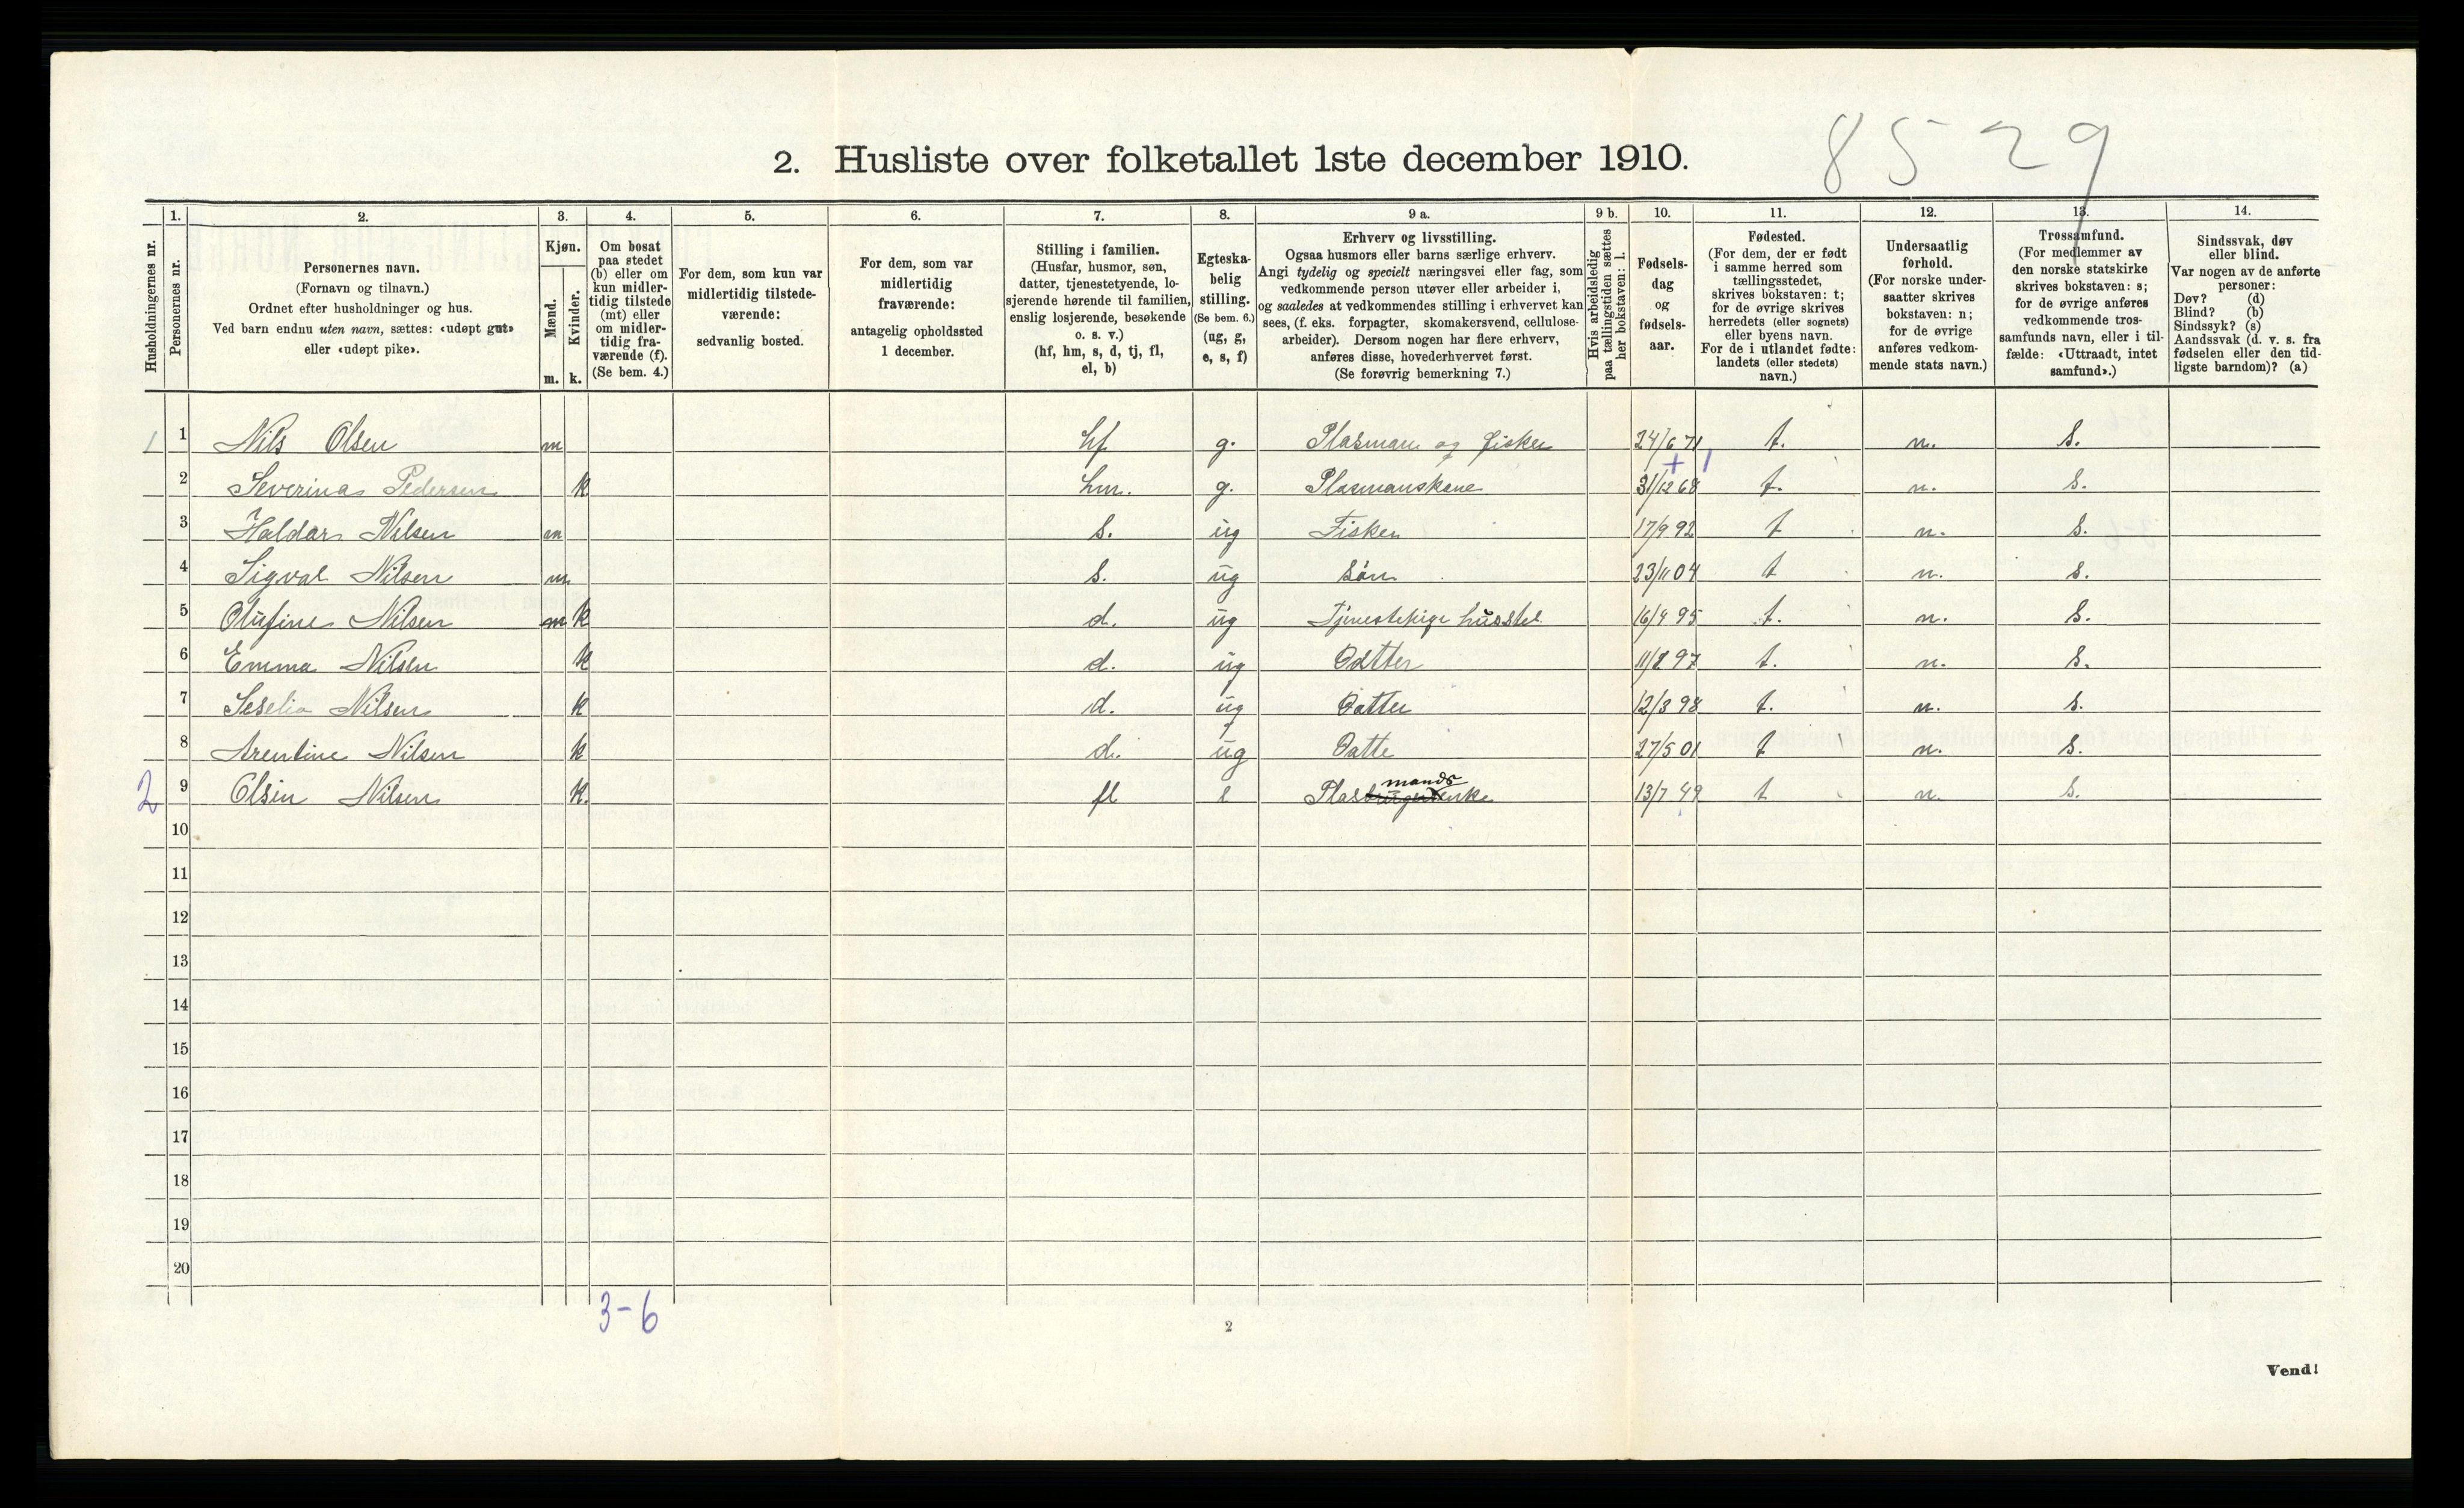 8529
2. Husliste over folketallet 1ste december 1910.
Husholdningernes nr.
1.
Personernes nr.
2.
Personernes navn.
(Fornavn og tilnavn.)
Ordnet efter husholdninger og hus.
Ved barn endnu uten navn, sættes: «udøpt gut»
eller «udøpt pike».
3.
Kjøn.
Mænd.
Kvinder.
m. k.
4.
Om bosat
paa stedet
(b) eller om
kun midler-
tidig tilstede
(mt) eller
om midler-
tidig fra-
værende (f).
(Se bem. 4.)
5.
For dem, som kun var
midlertidig tilstede-
værende:
sedvanlig bosted.
6.
For dem, som var
midlertidig
fraværende:
antagelig opholdssted
1 december.
7.
Stilling i familien.
(Husfar, husmor, søn,
datter, tjenestetyende, lo-
sjerende hørende til familien,
enslig losjerende, besøkende
o. s. v.)
(hf, hm, s, d, tj, fl,
el, b)
8.
Egteska-
belig
stilling.
(Se bem. 6.)
(ug, g,
e, s, f)
9 a.
Erhverv og livsstilling.
Ogsaa husmors eller barns særlige erhverv.
Angi tydelig og specielt næringsvei eller fag, som
vedkommende person utøver eller arbeider i,
og saaledes at vedkommendes stilling i erhvervet kan
sees, (f. eks. forpagter, skomakersvend, cellulose-
arbeider). Dersom nogen har flere erhverv,
anføres disse, hovederhvervet først.
(Se forøvrig bemerkning 7.)
9 b.
Hvis arbeidsledig
paa tællingstiden sættes
her bokstaven: l.
10.
Fødsels-
dag
og
fødsels-
aar.
11.
Fødested.
(For dem, der er født
i samme herred som
tællingsstedet,
skrives bokstaven: t;
for de øvrige skrives
herredets (eller sognets)
eller byens navn.
For de i utlandet fødte:
landets (eller stedets)
navn.)
12.
Undersaatlig
forhold.
(For norske under-
saatter skrives
bokstaven: n;
for de øvrige
anføres vedkom-
mende stats navn.)
13.
Trossamfund.
(For medlemmer av
den norske statskirke
skrives bokstaven: s;
for de øvrige anføres
vedkommende tros-
samfunds navn, eller i til-
fælde: «Uttraadt, intet
samfund».)
14.
Sindssvak, døv
eller blind.
Var nogen av de anførte
personer:
Døv? (d)
Blind? (b)
Sindssyk? (s)
Aandssvak (d. v. s. fra
fødselen eller den tid-
ligste barndom)? (a)
1 1 Nils Olsen m hf g. Plasman og fisker 24/6 71 t. n. S.
+ 1
2 Severina Pedersen k hm. g. Plasmanskone 31/12 68 t. n. S.
3 Haldor Nilsen m s. ug Fisker 17/9 92 t n. S.
4 Sigval Nilsen m s. ug Søn 23/11 04 t n. S.
5 Olufine Nilsen m k d. ug Tjenestepige husstel 16/4 95 t. n. S.
6 Emma Nilsen k d. ug Datter 11/8 97 t. n. S.
7 Seselia Nilsen k d. ug Datter 12/3 98 t. n. S.
8 Arentine Nilsen k d. ug Datte 27/5 01 t n. S.
mands
2 9 Olsin Nilsen k. fl e Plas enke 13/7 49 t n. S.
10
11
12
13
14
15
16
17
18
19
20
3-6
2
Vend!